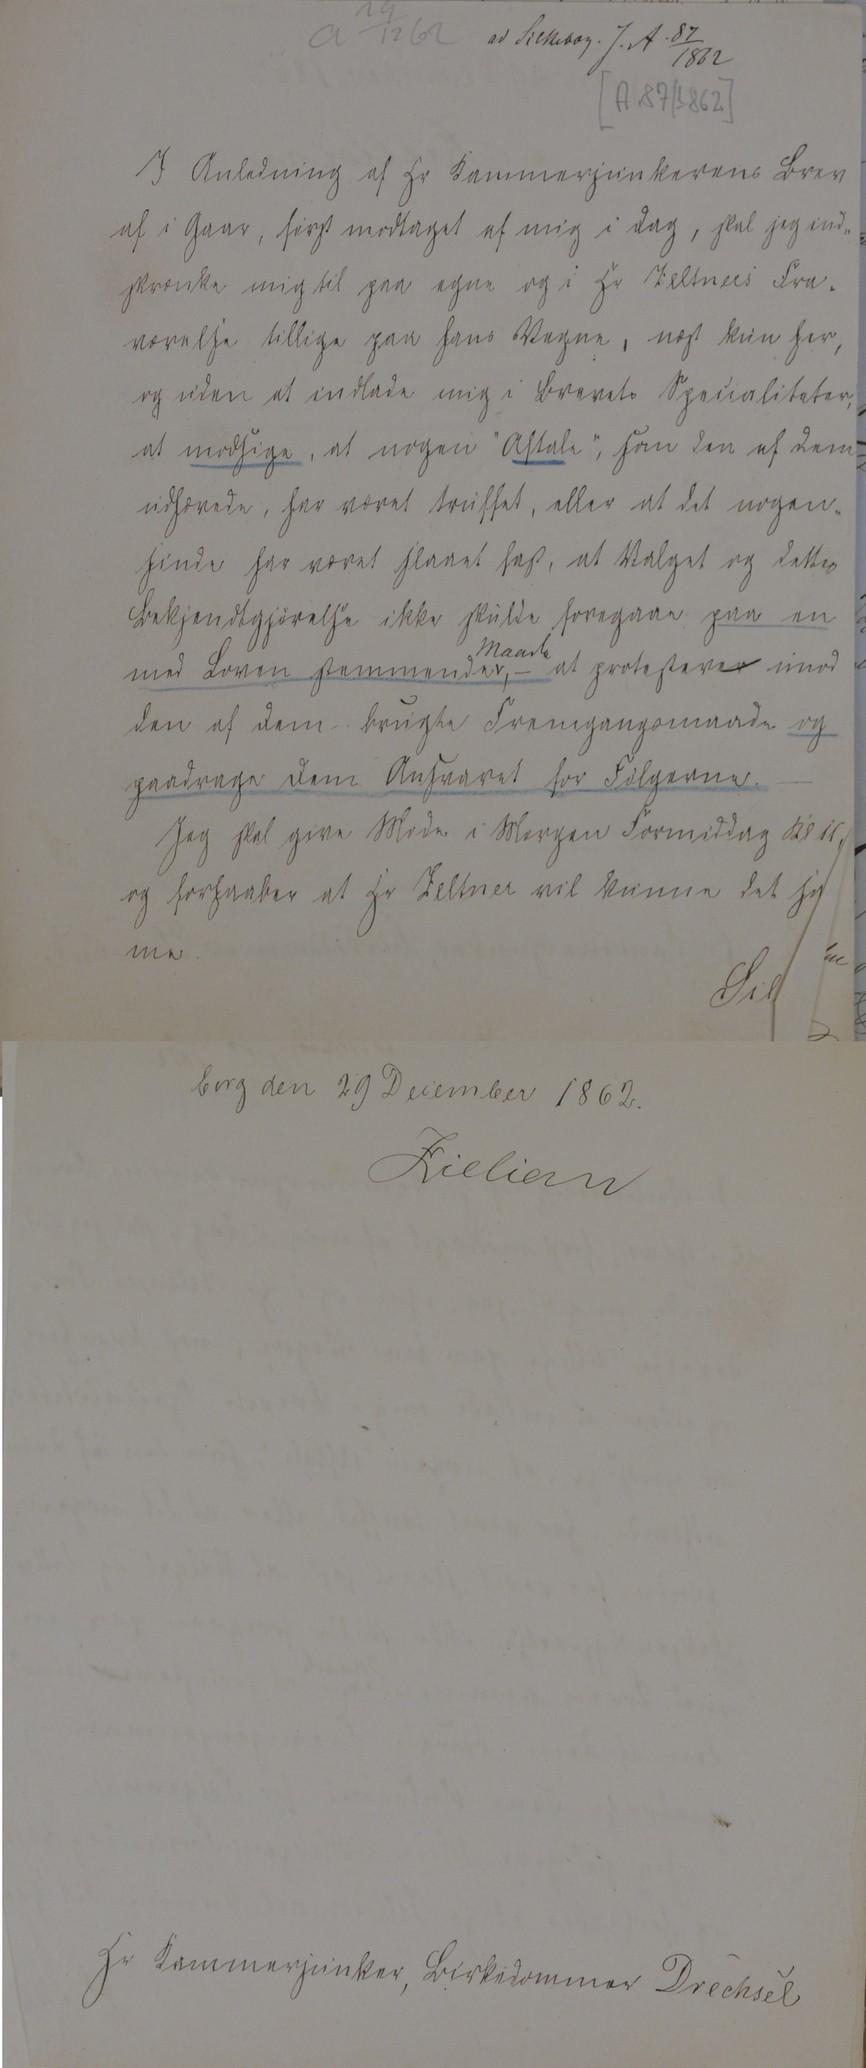 a 29/12 62
ad Silkeborg. J. A. 87/1862
[A 87/1862]
I Anledning af Hr Kammerjunkerens Brev
af i Gaar, först modtaget af mig i Dag, skal jeg ind-
skrænke mig til paa egne og i Hr Zeltners Fra-
værelse tillige paa hans Vegne, næst kun her,
og uden at indlade mig i Brevets Specialiteter,
at modsige, at nogen "Aftale", som den af Dem
udhævede, har været truffet, eller at det nogen-
sinde har været slaaet fast, at Valget og dettes
Bekjendtgjörelse ikke skulde foregaae paa en
med Loven stemmende Maade, – at protestere imod
den af Dem brugte Fremgangsmaade og
paadrage Dem Ansvaret for Fölgerne. —
Jeg skal give Möde i Morgen Formiddag Kl 11,
og forhaaber at Hr Zeltner vil kunne det sa
me.
Sil
borg den 29 December 1862.
Zielian
Hr Kammerjunker, Birkedommer Drechsel